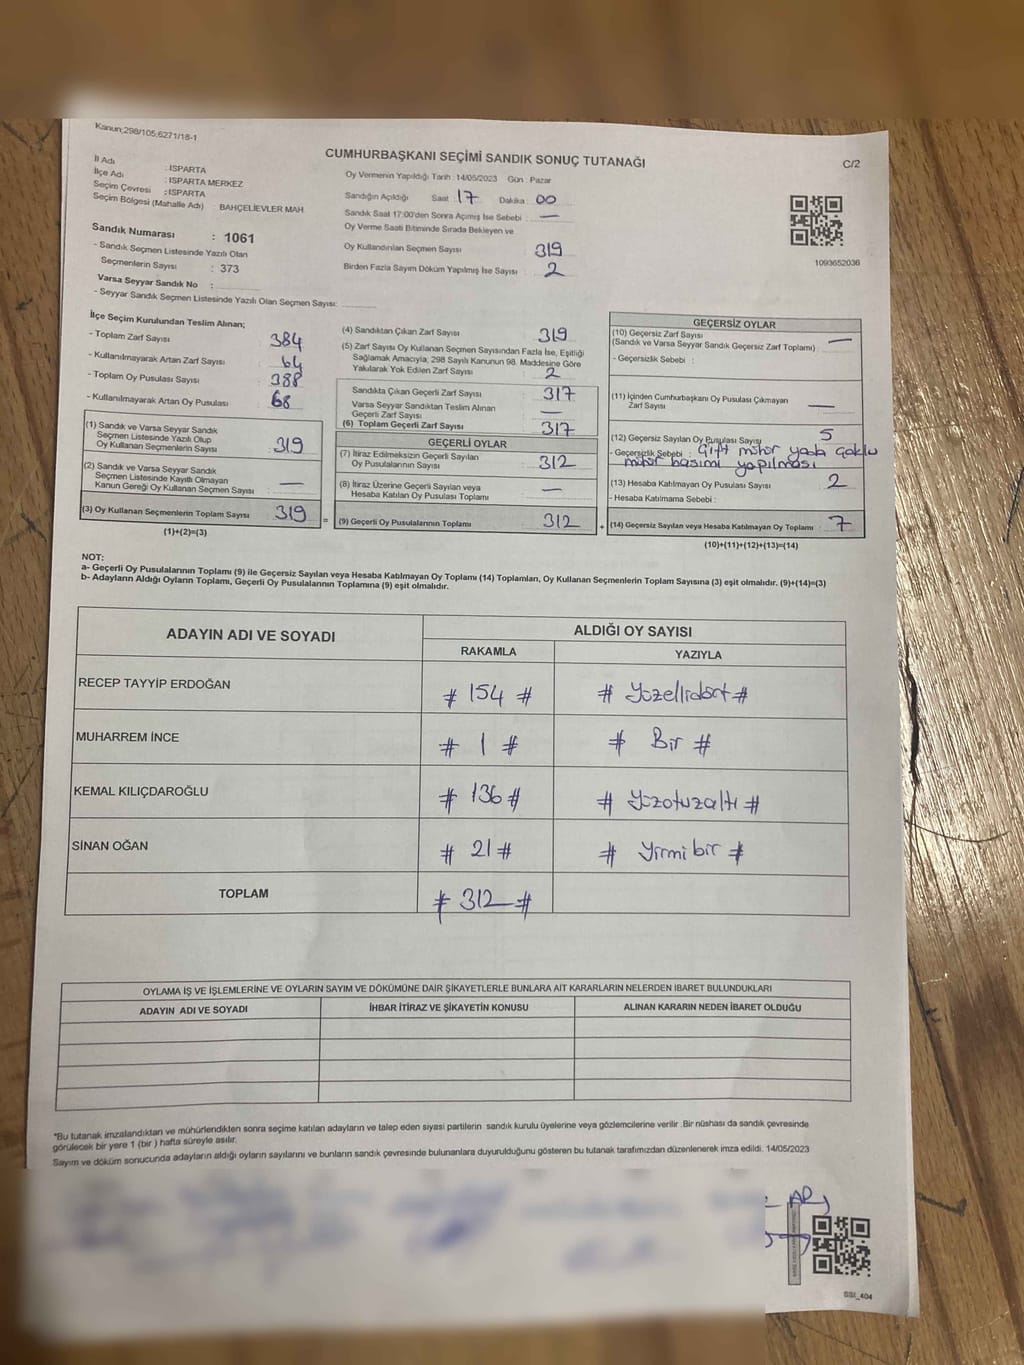 Kanun;298/105;6271/18-1
CUMHURBAŞKANI SEÇİMİ SANDIK SONUÇ TUTANAĞI
C/2
İl Adı : ISPARTA
İlçe Adı : ISPARTA MERKEZ
Seçim Çevresi : ISPARTA
Seçim Bölgesi (Mahalle Adı) : BAHÇELİEVLER MAH
Sandık Numarası : 1061
- Sandık Seçmen Listesinde Yazılı Olan
Seçmenlerin Sayısı : 373
Varsa Seyyar Sandık No :
- Seyyar Sandık Seçmen Listesinde Yazılı Olan Seçmen Sayısı:
Oy Vermenin Yapıldığı Tarih : 14/05/2023 Gün : Pazar
Sandığın Açıldığı Saat : 17 Dakika : 00
Sandık Saat 17:00'den Sonra Açımış İse Sebebi : —
Oy Verme Saati Bitiminde Sırada Bekleyen ve
Oy Kullandırılan Seçmen Sayısı : 319
Birden Fazla Sayım Döküm Yapılmış İse Sayısı : 2
1093652036
İlçe Seçim Kurulundan Teslim Alınan;
- Toplam Zarf Sayısı : 384
- Kullanılmayarak Artan Zarf Sayısı : 64
- Toplam Oy Pusulası Sayısı : 388
- Kullanılmayarak Artan Oy Pusulası : 68
(1) Sandık ve Varsa Seyyar Sandık
Seçmen Listesinde Yazılı Olup
Oy Kullanan Seçmenlerin Sayısı : 319
(2) Sandık ve Varsa Seyyar Sandık
Seçmen Listesinde Kayıtlı Olmayan
Kanun Gereği Oy Kullanan Seçmen Sayısı : —
(3) Oy Kullanan Seçmenlerin Toplam Sayısı : 319
(1)+(2)=(3)
=
(4) Sandıktan Çıkan Zarf Sayısı : 319
(5) Zarf Sayısı Oy Kullanan Seçmen Sayısından Fazla İse, Eşitliği
Sağlamak Amacıyla, 298 Sayılı Kanunun 98. Maddesine Göre
Yakılarak Yok Edilen Zarf Sayısı : 2
Sandıkta Çıkan Geçerli Zarf Sayısı : 317
Varsa Seyyar Sandıktan Teslim Alınan
Geçerli Zarf Sayısı : —
(6) Toplam Geçerli Zarf Sayısı : 317
GEÇERLİ OYLAR
(7) İtiraz Edilmeksizin Geçerli Sayılan
Oy Pusulalarının Sayısı : 312
(8) İtiraz Üzerine Geçerli Sayılan veya
Hesaba Katılan Oy Pusulası Toplamı : —
(9) Geçerli Oy Pusulalarının Toplamı : 312
+
GEÇERSİZ OYLAR
(10) Geçersiz Zarf Sayısı
(Sandık ve Varsa Seyyar Sandık Geçersiz Zarf Toplamı) : —
- Geçersizlik Sebebi :
(11) İçinden Cumhurbaşkanı Oy Pusulası Çıkmayan
Zarf Sayısı : —
(12) Geçersiz Sayılan Oy Pusulası Sayısı : 5
- Geçersizlik Sebebi : Çift mühür yada çoklu
mühür basımı yapılması
(13) Hesaba Katılmayan Oy Pusulası Sayısı : 2
- Hesaba Katılmama Sebebi :
(14) Geçersiz Sayılan veya Hesaba Katılmayan Oy Toplamı : 7
(10)+(11)+(12)+(13)=(14)
NOT:
a- Geçerli Oy Pusulalarının Toplamı (9) ile Geçersiz Sayılan veya Hesaba Katılmayan Oy Toplamı (14) Toplamları, Oy Kullanan Seçmenlerin Toplam Sayısına (3) eşit olmalıdır. (9)+(14)=(3)
b- Adayların Aldığı Oyların Toplamı, Geçerli Oy Pusulalarının Toplamına (9) eşit olmalıdır.
ADAYIN ADI VE SOYADI
ALDIĞI OY SAYISI
RAKAMLA YAZIYLA
RECEP TAYYİP ERDOĞAN # 154 # # Yüzellidört #
MUHARREM İNCE # 1 # # Bir #
KEMAL KILIÇDAROĞLU # 136 # # Yüzotuzaltı #
SİNAN OĞAN # 21 # # Yirmi bir #
TOPLAM # 312 #
OYLAMA İŞ VE İŞLEMLERİNE VE OYLARIN SAYIM VE DÖKÜMÜNE DAİR ŞİKAYETLERLE BUNLARA AİT KARARLARIN NELERDEN İBARET BULUNDUKLARI
ADAYIN ADI VE SOYADI İHBAR İTİRAZ VE ŞİKAYETİN KONUSU ALINAN KARARIN NEDEN İBARET OLDUĞU
*Bu tutanak imzalandıktan ve mühürlendikten sonra seçime katılan adayların ve talep eden siyasi partilerin sandık kurulu üyelerine veya gözlemcilerine verilir .Bir nüshası da sandık çevresinde
görülecek bir yere 1 (bir ) hafta süreyle asılır.
Sayım ve döküm sonucunda adayların aldığı oyların sayılarını ve bunların sandık çevresinde bulunanlara duyurulduğunu gösteren bu tutanak tarafımızdan düzenlenerek imza edildi. 14/05/2023
SSI_404